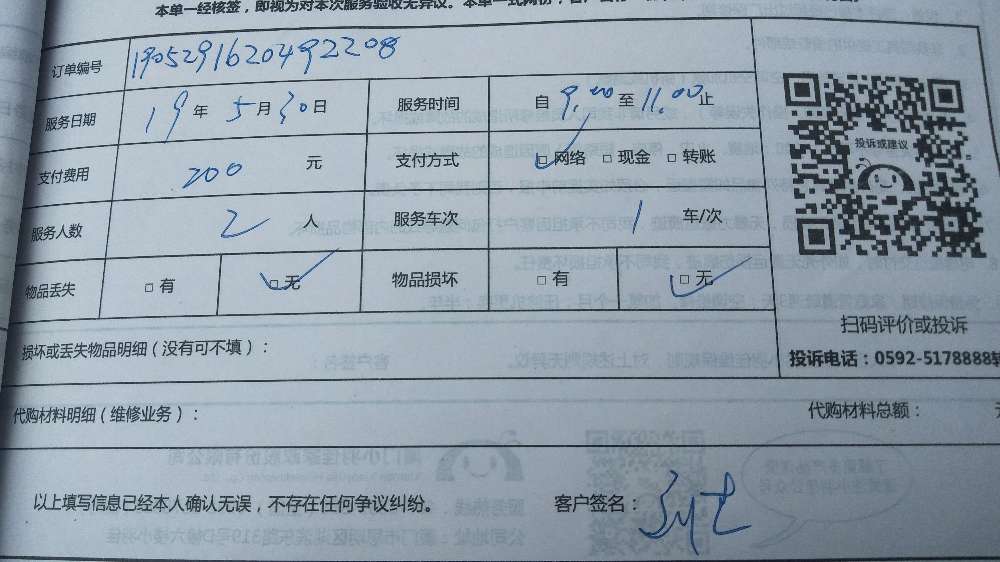 本单一经核签，即视为对本次服务验收无异议。本单一式两份，客户
订单编号 1905291620492208
服务日期 19 年 5 月 30 日 服务时间 自 9.00 至 11.00 止
支付费用 200 元 支付方式 □网络 □现金 □转账
服务人数 2 人 服务车次 1 车/次
物品丢失 □有 □无 物品损坏 □有 □无
损坏或丢失物品明细（没有可不填）：
投诉或建议
扫码评价或投诉
投诉电话：0592-5178888转
代购材料明细（维修业务）： 代购材料总额：
以上填写信息已经本人确认无误，不存在任何争议纠纷。 客户签名：